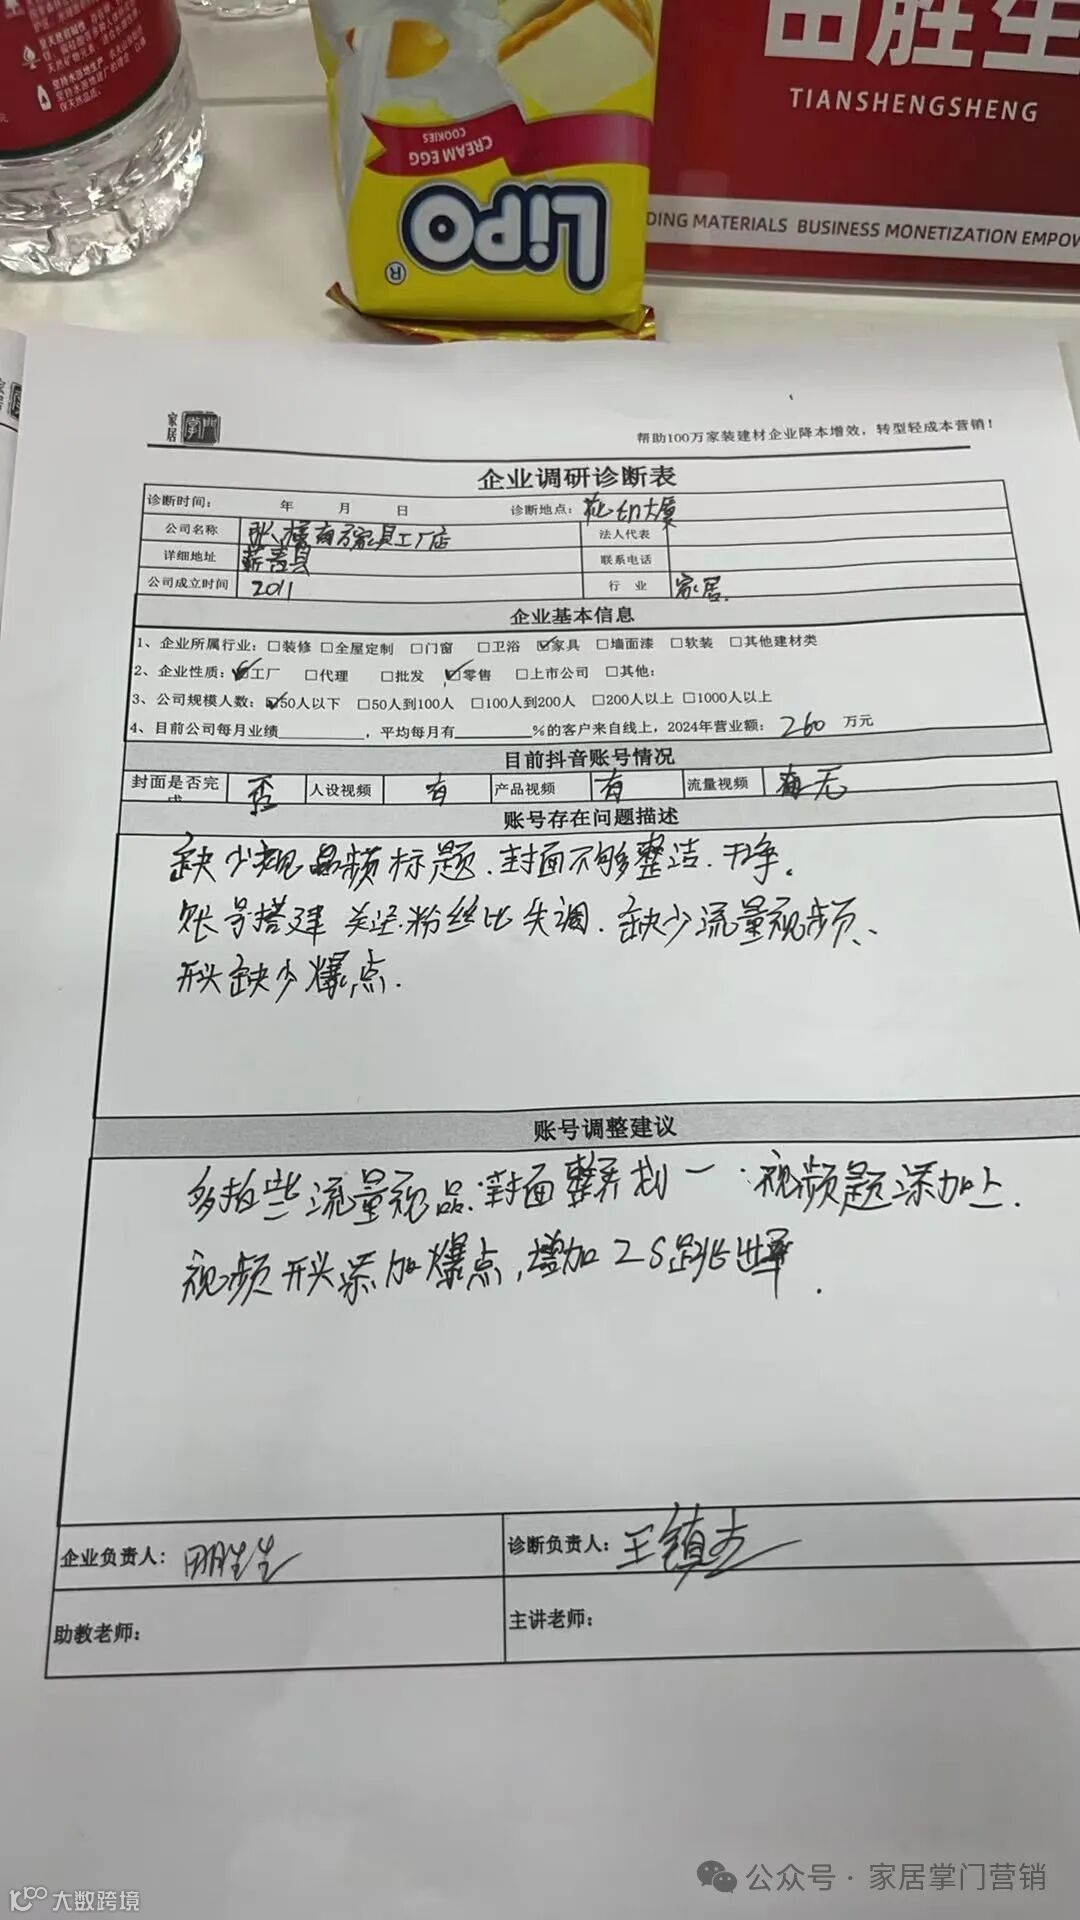 坚持水源地生产
坚持水源地建厂的理念
CREAM EGG
COOKIES
LiPO
®
田胜生
TIANSHENGSHENG
DING MATERIALS BUSINESS MONETIZATION EMPOW
家居
帮助100万家装建材企业降本增效，转型轻成本营销！
企业调研诊断表
诊断时间： 年 月 日 诊断地点： 大厦
公司名称 南方家具工厂店 法人代表
详细地址 联系电话
公司成立时间 2011 行 业 家居.
企业基本信息
1、企业所属行业：□装修 □全屋定制 □门窗 □卫浴 ☑家具 □墙面漆 □软装 □其他建材类
2、企业性质：☑工厂 □代理 □批发 ☑零售 □上市公司 □其他：
3、公司规模人数：☑50人以下 □50人到100人 □100人到200人 □200人以上 □1000人以上
4、目前公司每月业绩________，平均每月有________%的客户来自线上，2024年营业额： 260 万元
目前抖音账号情况
封面是否完成 否 人设视频 有 产品视频 有 流量视频 无
账号存在问题描述
缺少视频标题.封面不够整洁.干净。
账号搭建 关注.粉丝比失调.缺少流量视频、
开头缺少爆点.
账号调整建议
多拍些流量视品.封面整齐划一.视频题添加上.
视频开头添加爆点,增加2S跳出率.
企业负责人： 田胜生 诊断负责人： 王镇杰
助教老师： 主讲老师：
公众号·家居掌门营销
大数跨境